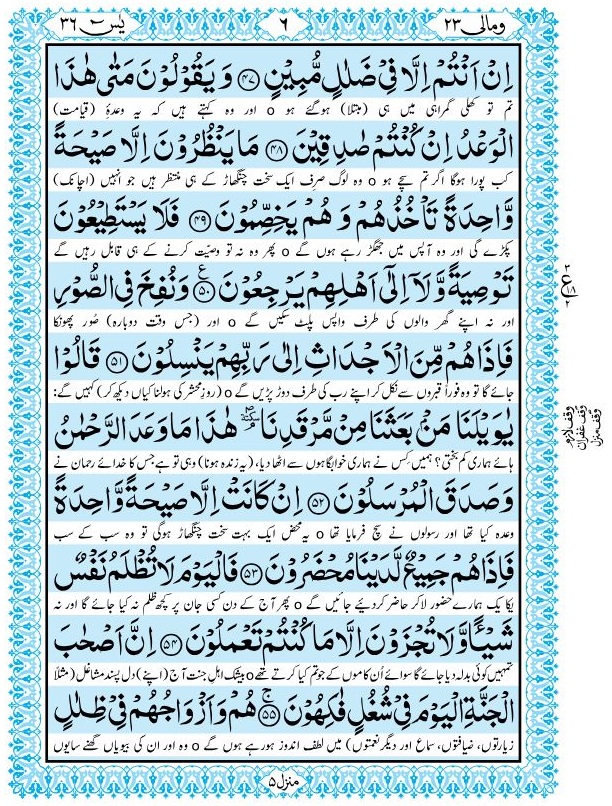 ومالی ۲۳ ۶ یٰسٓ ۳۶
اِنْ اَنْتُمْ اِلَّا فِیْ ضَلٰلٍ مُّبِیْنٍ ﴿۴۷﴾ وَ یَقُوْلُوْنَ مَتٰی هٰذَا
تم تو کھلی گمراہی میں ہی (مبتلا) ہوگئے ہو o اور وہ کہتے ہیں کہ یہ وعدۂ (قیامت)
الْوَعْدُ اِنْ كُنْتُمْ صٰدِقِیْنَ ﴿۴۸﴾ مَا یَنْظُرُوْنَ اِلَّا صَیْحَةً
کب پورا ہوگا اگر تم سچے ہو o وہ لوگ صرف ایک سخت چنگھاڑ کے ہی منتظر ہیں جو انہیں (اچانک)
وَّاحِدَةً تَاْخُذُهُمْ وَ هُمْ یَخِصِّمُوْنَ ﴿۴۹﴾ فَلَا یَسْتَطِیْعُوْنَ
پکڑے گی اور وہ آپس میں جھگڑ رہے ہوں گے o پھر وہ نہ تو وصیّت کرنے کے ہی قابل رہیں گے
تَوْصِیَةً وَّ لَاۤ اِلٰۤی اَهْلِهِمْ یَرْجِعُوْنَ ﴿۵۰﴾ ع وَ نُفِخَ فِی الصُّوْرِ
اور نہ اپنے گھر والوں کی طرف واپس پلٹ سکیں گے o اور (جس وقت دوبارہ) صُور پھونکا
فَاِذَا هُمْ مِّنَ الْاَجْدَاثِ اِلٰی رَبِّهِمْ یَنْسِلُوْنَ ﴿۵۱﴾ قَالُوْا
جائے گا تو وہ فوراً قبروں سے نکل کر اپنے رب کی طرف دوڑ پڑیں گے o (روزِ محشر کی ہولناکیاں دیکھ کر) کہیں گے:
یٰوَیْلَنَا مَنْۢ بَعَثَنَا مِنْ مَّرْقَدِنَا هٰذَا مَا وَعَدَ الرَّحْمٰنُ
ہائے ہماری کم بختی! ہمیں کس نے ہماری خوابگاہوں سے اٹھا دیا، (یہ زندہ ہونا) وہی تو ہے جس کا خدائے رحمان نے
وَ صَدَقَ الْمُرْسَلُوْنَ ﴿۵۲﴾ اِنْ كَانَتْ اِلَّا صَیْحَةً وَّاحِدَةً
وعدہ کیا تھا اور رسولوں نے سچ فرمایا تھا o یہ محض ایک بہت سخت چنگھاڑ ہوگی تو وہ سب کے سب
فَاِذَا هُمْ جَمِیْعٌ لَّدَیْنَا مُحْضَرُوْنَ ﴿۵۳﴾ فَالْیَوْمَ لَا تُظْلَمُ نَفْسٌ
یکایک ہمارے حضور لا کر حاضر کر دیئے جائیں گے o پھر آج کے دن کسی جان پر کچھ ظلم نہ کیا جائے گا اور نہ
شَیْـًٔا وَّ لَا تُجْزَوْنَ اِلَّا مَا كُنْتُمْ تَعْمَلُوْنَ ﴿۵۴﴾ اِنَّ اَصْحٰبَ
تمہیں کوئی بدلہ دیا جائے گا سوائے اُن کاموں کے جو تم کیا کرتے تھے o بیشک اہلِ جنت آج (اپنے) دل پسند مشاغل (مثلاً
الْجَنَّةِ الْیَوْمَ فِیْ شُغُلٍ فٰكِهُوْنَ ﴿۵۵﴾ ج هُمْ وَ اَزْوَاجُهُمْ فِیْ ظِلٰلٍ
زیارتوں، ضیافتوں، سماع اور دیگر نعمتوں) میں لطف اندوز ہو رہے ہوں گے o وہ اور ان کی بیویاں گھنے سایوں
منزل ۵
ع
وقف لازم
وقف غفران
وقف منزل